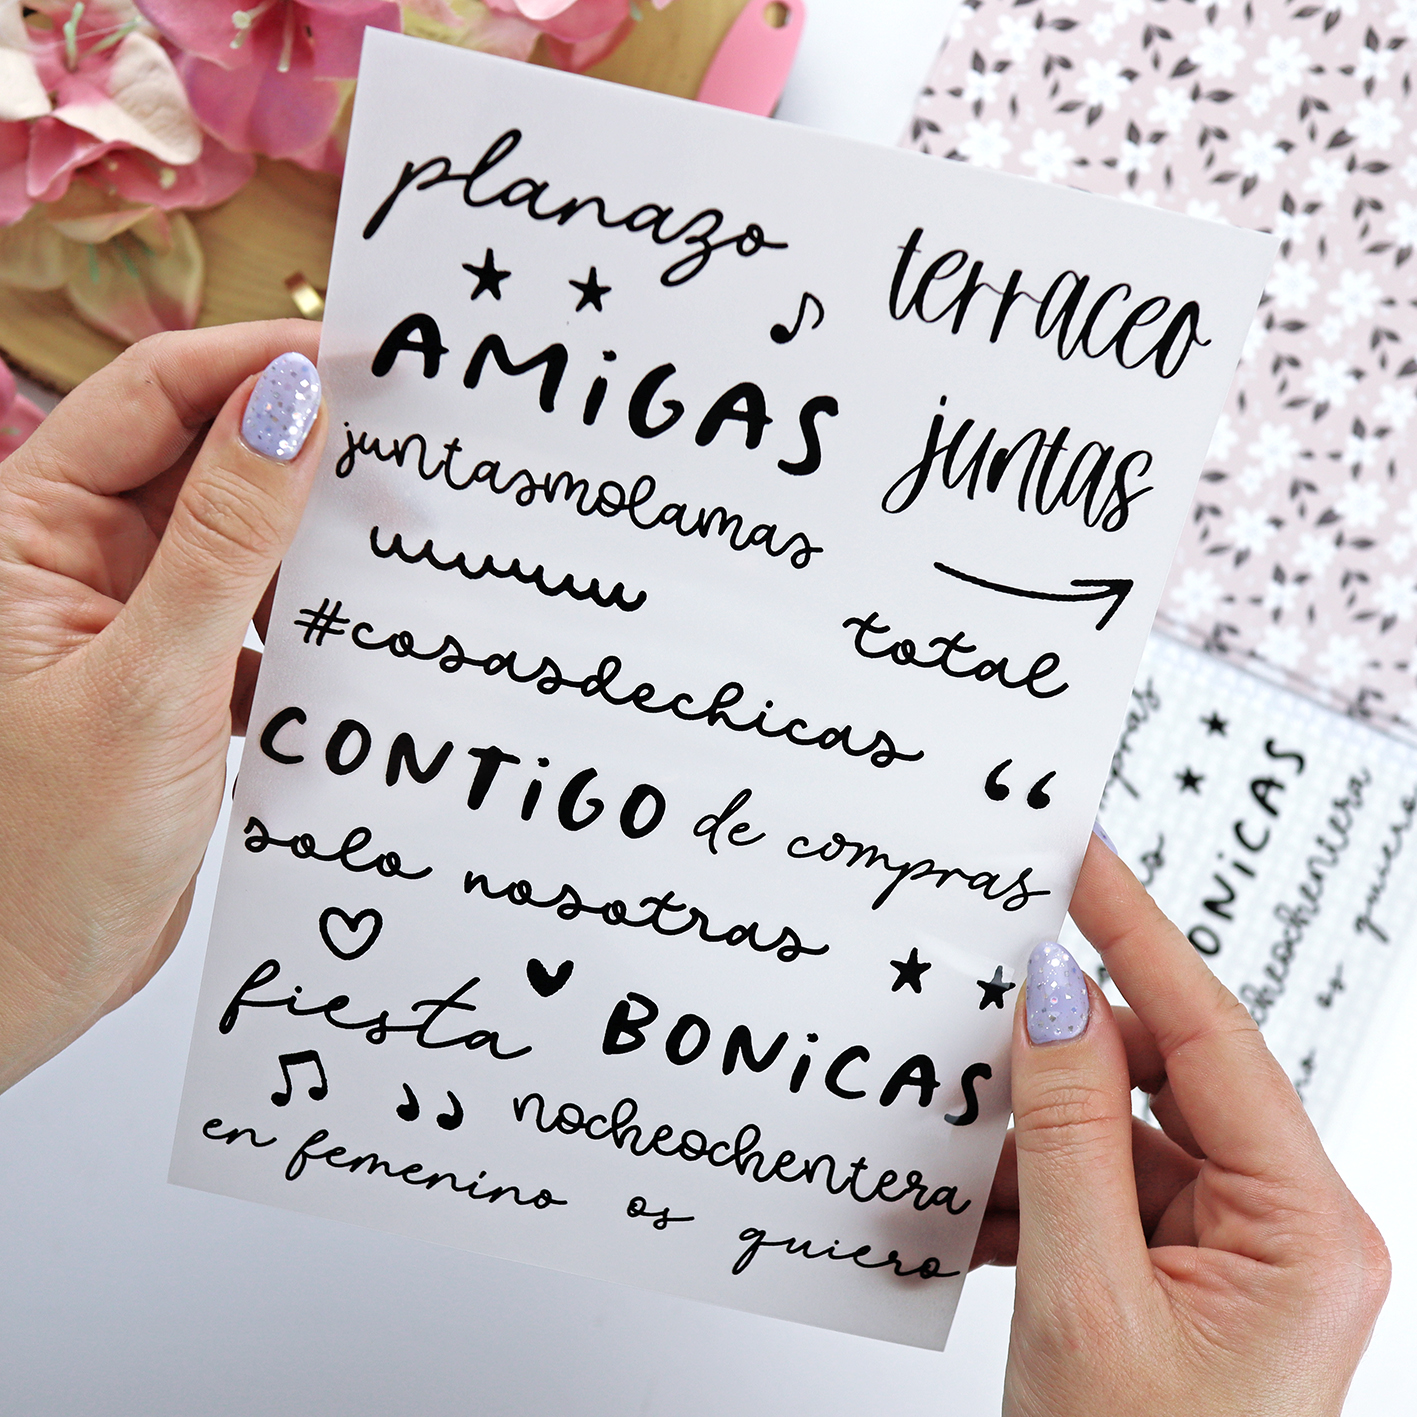 planazo
terraceo
AMiGAS
juntas
juntasmolamas
total
#cosasdechicas
“
CONTiGO
de compras
solo nosotras
fiesta
BONiCAS
”
nocheochentera
en femenino
os quiero
ONiCAS
quiero
os